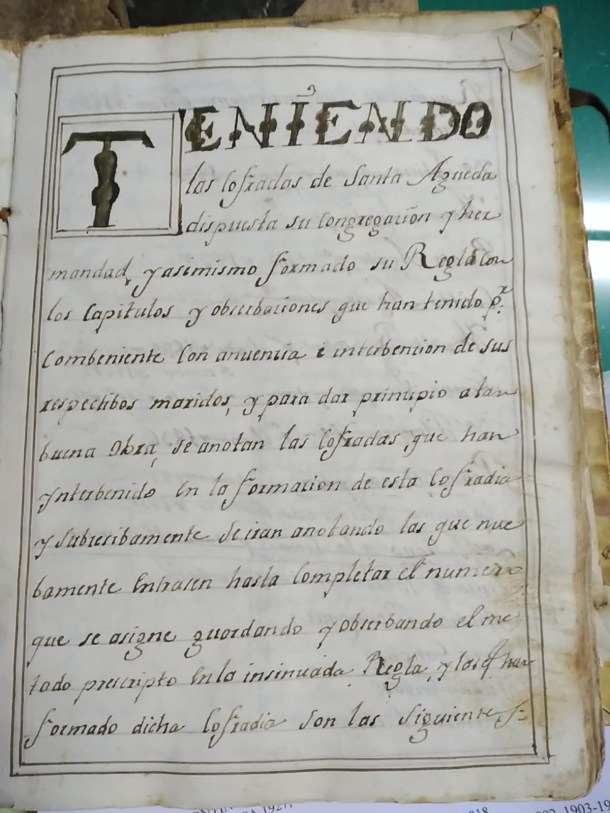 1
TENIENDO
las Cofradas de Santa Agueda
dispuesta su Congregacion y her
mandad, y asimismo formado su Regla con
los Capitulos y obserbaciones que han tenido pr.
Combeniente Con anuencia e interbencion de sus
respectibos maridos, y para dar principio a tan
buena Obra, se anotan las Cofradas, que han
Ynterbenido en la formacion de esta Cofradia
y Subcecibamente Se iran anotando las que nue
bamente Entrasen hasta Completar el numero
que se asigne guardando y obserbando el me
todo prescripto En la insinuada Regla, y las q. han
formado dicha Cofradia son las Siguientes
1903-19